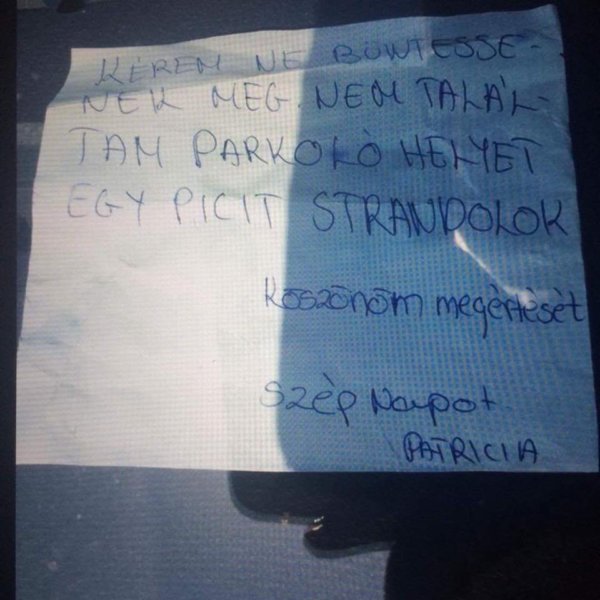 KÉREM NE BÜNTESSE-
NEK MEG. NEM TALÁL-
TAM PARKOLÓ HELYET
EGY PICIT STRANDOLOK
Köszönöm megértését
Szép Napot
PATRICIA